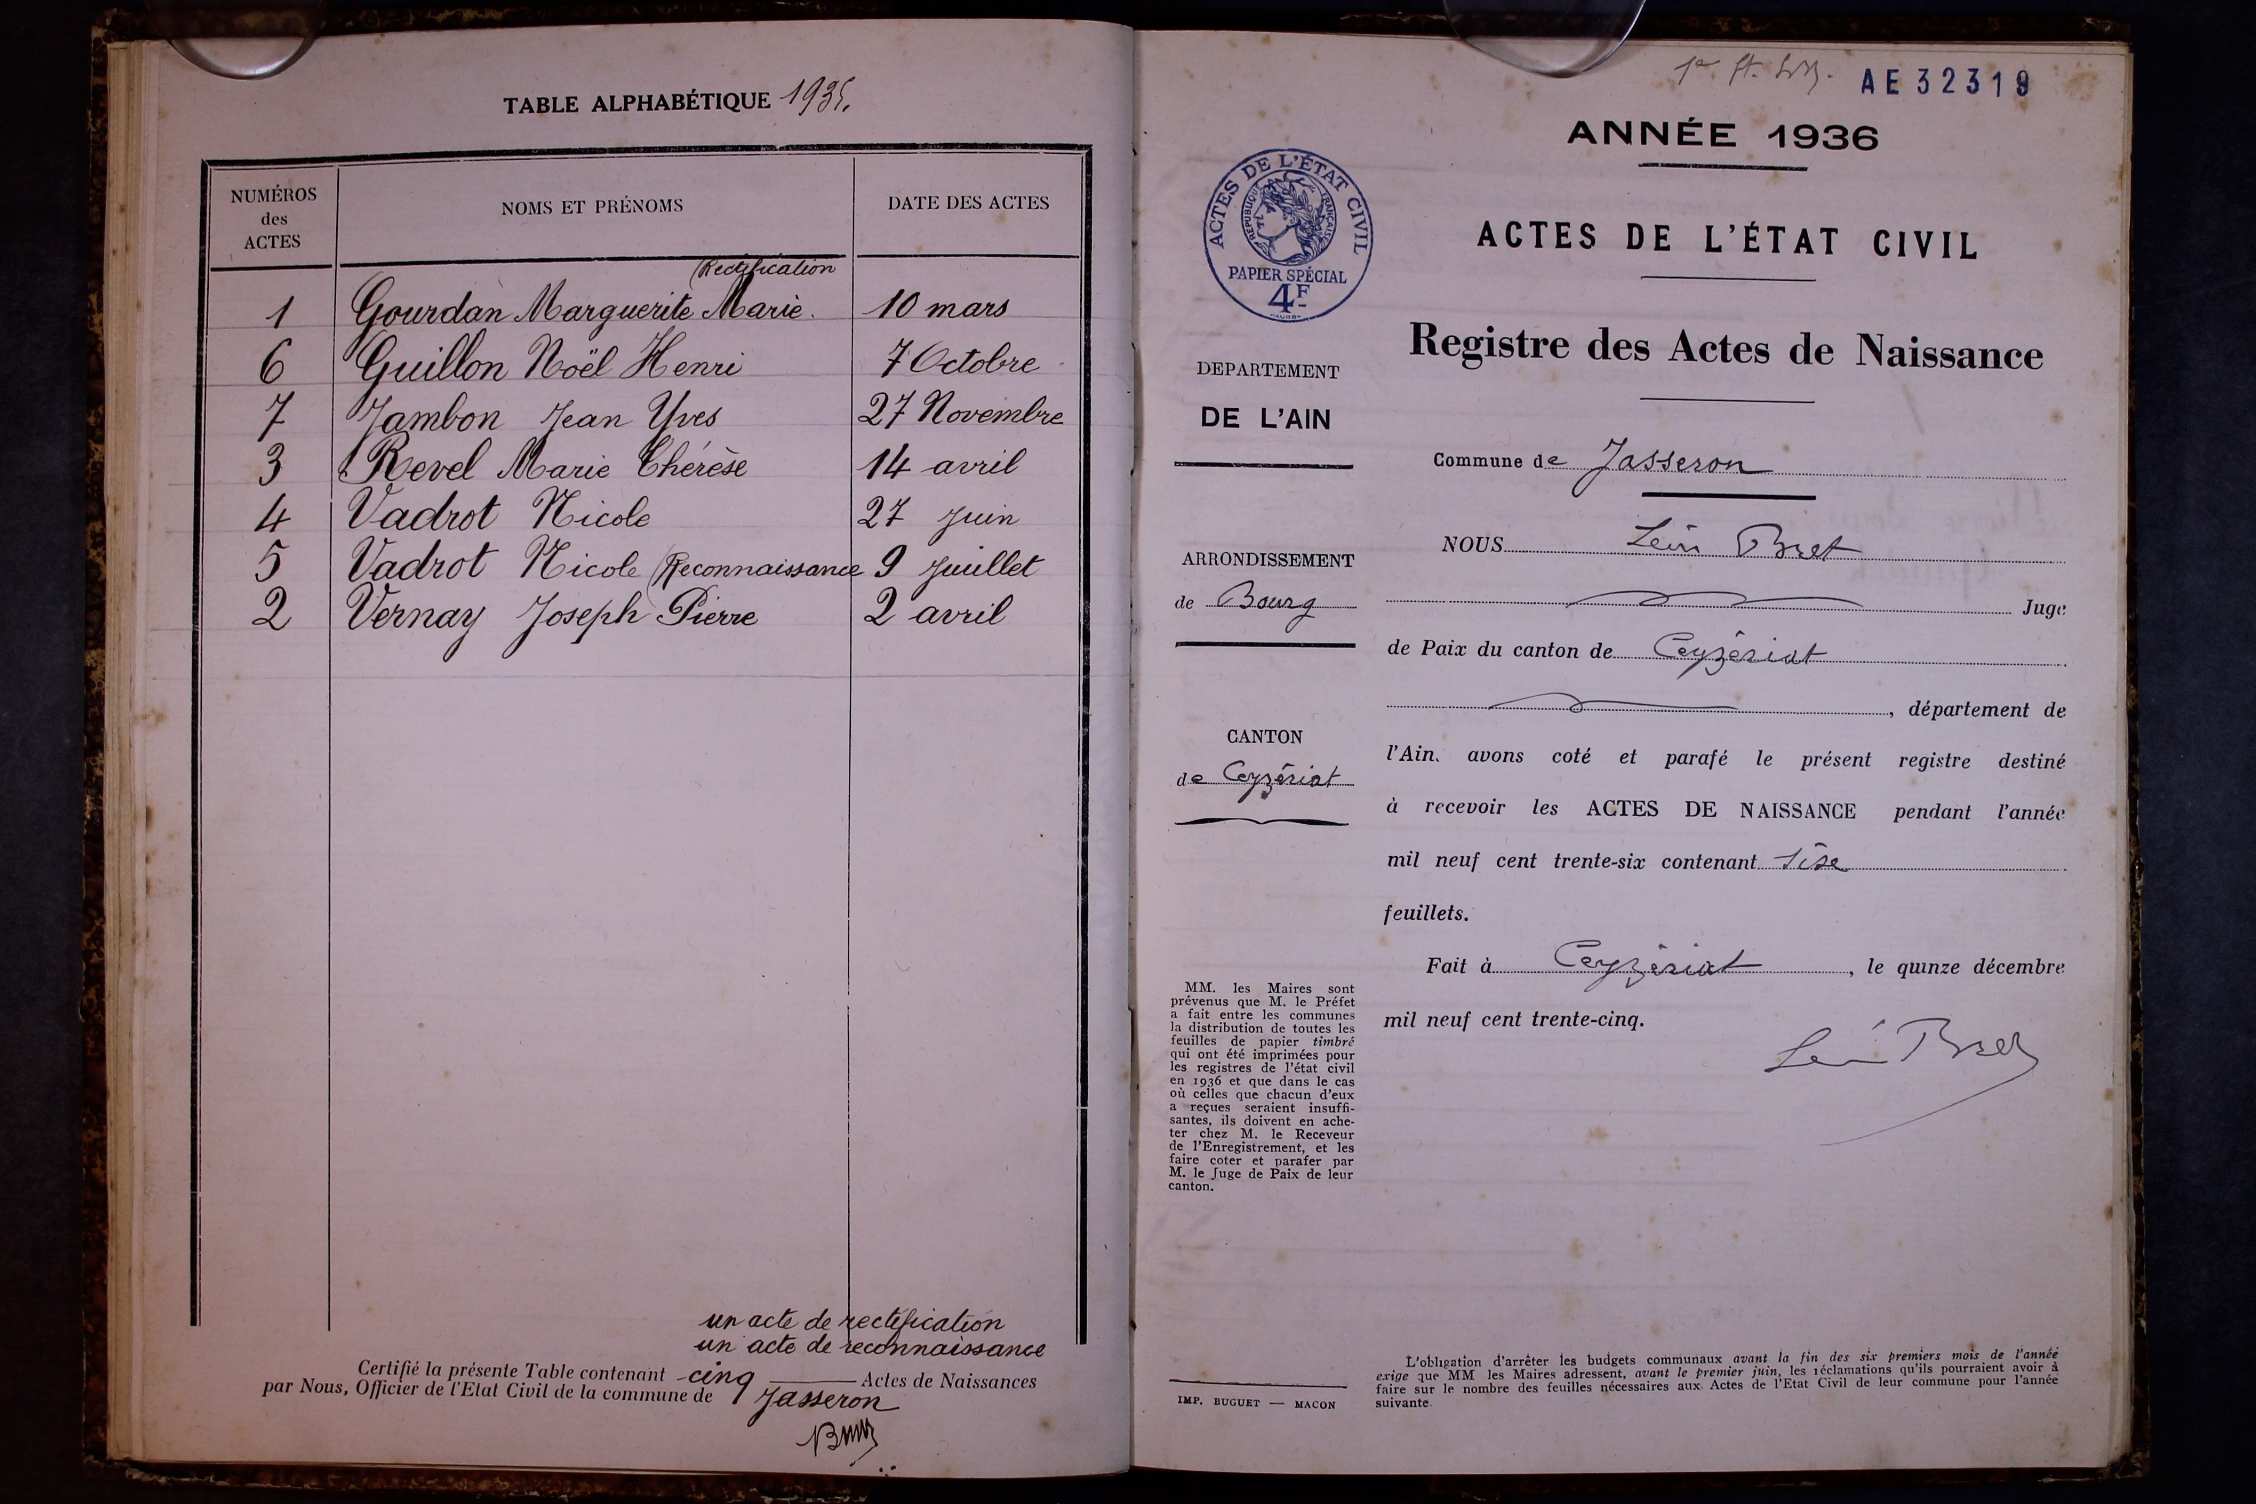 TABLE ALPHABÉTIQUE 1935.
NUMÉROS
des
ACTES
NOMS ET PRÉNOMS
DATE DES ACTES
(Rectification
1 Gourdan Marguerite Marie. 10 mars
6 Guillon Noël Henri 7 Octobre
7 Jambon Jean Yves 27 Novembre
3 Revel Marie Thérèse 14 avril
4 Vadrot Nicole 27 juin
5 Vadrot Nicole (Reconnaissance 9 juillet
2 Vernay Joseph Pierre 2 avril
un acte de rectification
un acte de reconnaissance
Certifié la présente Table contenant cinq Actes de Naissances
par Nous, Officier de l'Etat Civil de la commune de Jasseron
AE 32319
ANNÉE 1936
ACTES DE L'ÉTAT CIVIL
RÉPUBLIQUE FRANÇAISE
PAPIER SPÉCIAL
4F
ACTES DE L'ÉTAT CIVIL
Registre des Actes de Naissance
DEPARTEMENT
DE L'AIN
Commune de Jasseron
ARRONDISSEMENT
de Bourg
NOUS Léon Bret
Juge
de Paix du canton de Ceyzériat
, département de
CANTON
de Ceyzériat
l'Ain, avons coté et parafé le présent registre destiné
à recevoir les ACTES DE NAISSANCE pendant l'année
mil neuf cent trente-six contenant sise
feuillets.
Fait à Ceyzériat, le quinze décembre
mil neuf cent trente-cinq.
Léon Bret
MM. les Maires sont
prévenus que M. le Préfet
a fait entre les communes
la distribution de toutes les
feuilles de papier timbré
qui ont été imprimées pour
les registres de l'état civil
en 1936 et que dans le cas
où celles que chacun d'eux
a reçues seraient insuffi-
santes, ils doivent en ache-
ter chez M. le Receveur
de l'Enregistrement, et les
faire coter et parafer par
M. le Juge de Paix de leur
canton.
IMP. BUGUET — MACON
L'obligation d'arrêter les budgets communaux avant la fin des six premiers mois de l'année
exige que MM les Maires adressent, avant le premier juin, les réclamations qu'ils pourraient avoir à
faire sur le nombre des feuilles nécessaires aux Actes de l'Etat Civil de leur commune pour l'année
suivante.